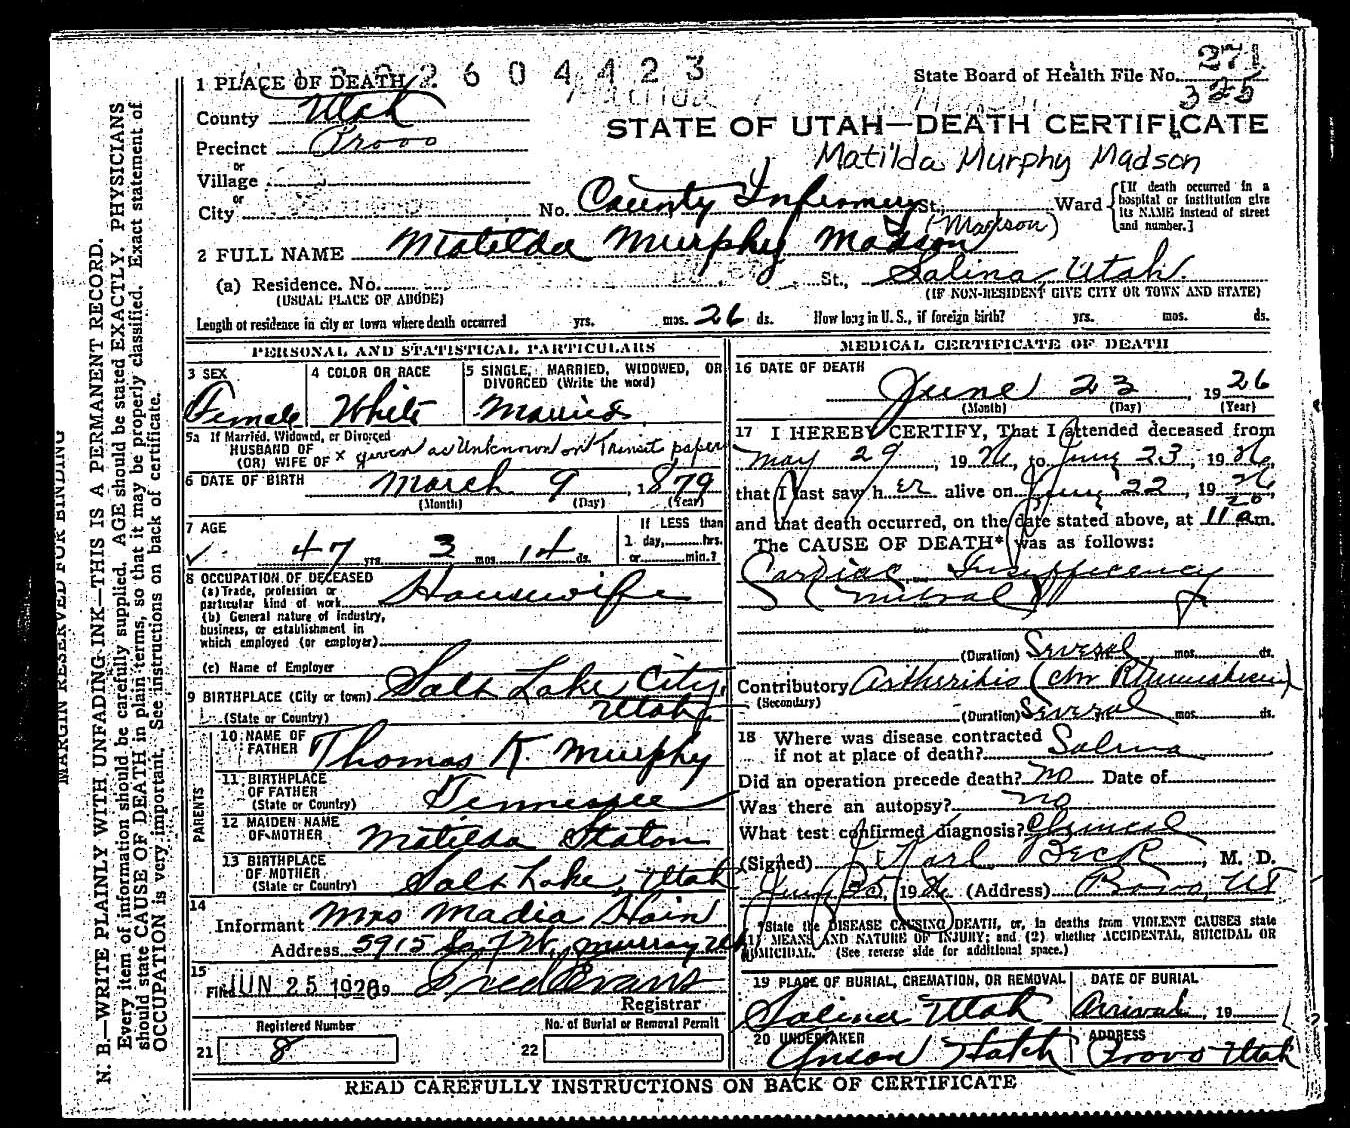 2604423
1 PLACE OF DEATH
State Board of Health File No. 271
325
County Utah
STATE OF UTAH—DEATH CERTIFICATE
Precinct Provo
Matilda Murphy Madson
or
Village
or
City
No. County Infirmary St., Ward
[If death occurred in a hospital or institution give its NAME instead of street and number.]
(Madison)
2 FULL NAME Matilda Murphy Madson
(a) Residence. No. St., Salina, Utah.
(USUAL PLACE OF ABODE)
(IF NON-RESIDENT GIVE CITY OR TOWN AND STATE)
Length of residence in city or town where death occurred yrs. mos. 26 ds. How long in U. S., if foreign birth? yrs. mos. ds.
PERSONAL AND STATISTICAL PARTICULARS
3 SEX
Female
4 COLOR OR RACE
White
5 SINGLE, MARRIED, WIDOWED, OR DIVORCED (Write the word)
Married
5a If Married, Widowed, or Divorced
HUSBAND OF
(OR) WIFE OF x given as Unknown on Transit paper
6 DATE OF BIRTH March 9, 1879
(Month) (Day) (Year)
7 AGE
47 yrs. 3 mos. 14 ds.
If LESS than
1 day, hrs.
or min.?
8 OCCUPATION OF DECEASED
(a) Trade, profession or
particular kind of work Housewife
(b) General nature of industry,
business, or establishment in
which employed (or employer)
(c) Name of Employer
9 BIRTHPLACE (City or town) Salt Lake City,
(State or Country) Utah
PARENTS
10 NAME OF
FATHER Thomas K. Murphy
11 BIRTHPLACE
OF FATHER
(State or Country) Tennessee
12 MAIDEN NAME
OF MOTHER Matilda Staton
13 BIRTHPLACE
OF MOTHER
(State or Country) Salt Lake, Utah
14
Informant Mrs Madia Hain
Address 5915 So. 1st W., Murray Ut
15
Filed JUN 25 1926 19 Fred Evans
Registrar
Registered Number
21 8
No. of Burial or Removal Permit
22
MEDICAL CERTIFICATE OF DEATH
16 DATE OF DEATH
June 23, 1926
(Month) (Day) (Year)
17 I HEREBY CERTIFY, That I attended deceased from
May 29, 1926, to June 23, 1926,
that I last saw her alive on June 22, 1926,
and that death occurred, on the date stated above, at 11 20 a.m.
The CAUSE OF DEATH* was as follows:
Cardiac Insufficency
(mitral)
(Duration) Several yrs. mos. ds.
Contributory Artheritis (chr Rheumatism)
(Secondary)
(Duration) Several yrs. mos. ds.
18 Where was disease contracted
if not at place of death? Salina
Did an operation precede death? no Date of
Was there an autopsy? no
What test confirmed diagnosis? Clinical
(Signed) J Karl Beck, M. D.
June 25, 1926 (Address) Provo, UT
*State the DISEASE CAUSING DEATH, or, in deaths from VIOLENT CAUSES state
(1) MEANS AND NATURE OF INJURY; and (2) whether ACCIDENTAL, SUICIDAL OR
HOMICIDAL. (See reverse side for additional space.)
19 PLACE OF BURIAL, CREMATION, OR REMOVAL
Salina Utah
DATE OF BURIAL
Arrival, 19
20 UNDERTAKER
Anson Hatch
ADDRESS
Provo Utah
READ CAREFULLY INSTRUCTIONS ON BACK OF CERTIFICATE
MARGIN RESERVED FOR BINDING
N. B.—WRITE PLAINLY WITH UNFADING INK—THIS IS A PERMANENT RECORD.
Every item of information should be carefully supplied. AGE should be stated EXACTLY. PHYSICIANS
should state CAUSE OF DEATH in plain terms, so that it may be properly classified. Exact statement of
OCCUPATION is very important. See instructions on back of certificate.